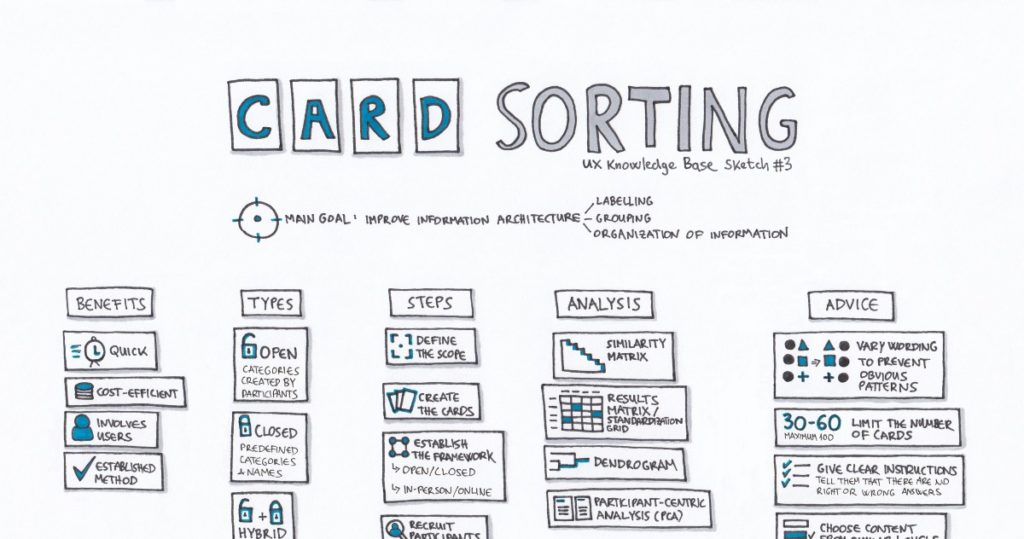 CARD SORTING
UX Knowledge Base Sketch #3
MAIN GOAL: IMPROVE INFORMATION ARCHITECTURE
LABELLING
GROUPING
ORGANIZATION OF INFORMATION
BENEFITS
QUICK
COST-EFFICIENT
INVOLVES
USERS
ESTABLISHED
METHOD
TYPES
OPEN
CATEGORIES
CREATED BY
PARTICIPANTS
CLOSED
PREDEFINED
CATEGORIES
+ NAMES
+
HYBRID
STEPS
DEFINE
THE SCOPE
CREATE
THE CARDS
ESTABLISH
THE FRAMEWORK
↳ OPEN/CLOSED
↳ IN-PERSON/ONLINE
RECRUIT
PARTICIPANTS
ANALYSIS
SIMILARITY
MATRIX
RESULTS
MATRIX/
STANDARDIZATION
GRID
DENDROGRAM
PARTICIPANT-CENTRIC
ANALYSIS (PCA)
ADVICE
VARY WORDING
TO PREVENT
OBVIOUS
PATTERNS
30-60 LIMIT THE NUMBER
MAXIMUM 100 OF CARDS
GIVE CLEAR INSTRUCTIONS
TELL THEM THAT THERE ARE NO
RIGHT OR WRONG ANSWERS
CHOOSE CONTENT
FROM SIMILAR LEVELS